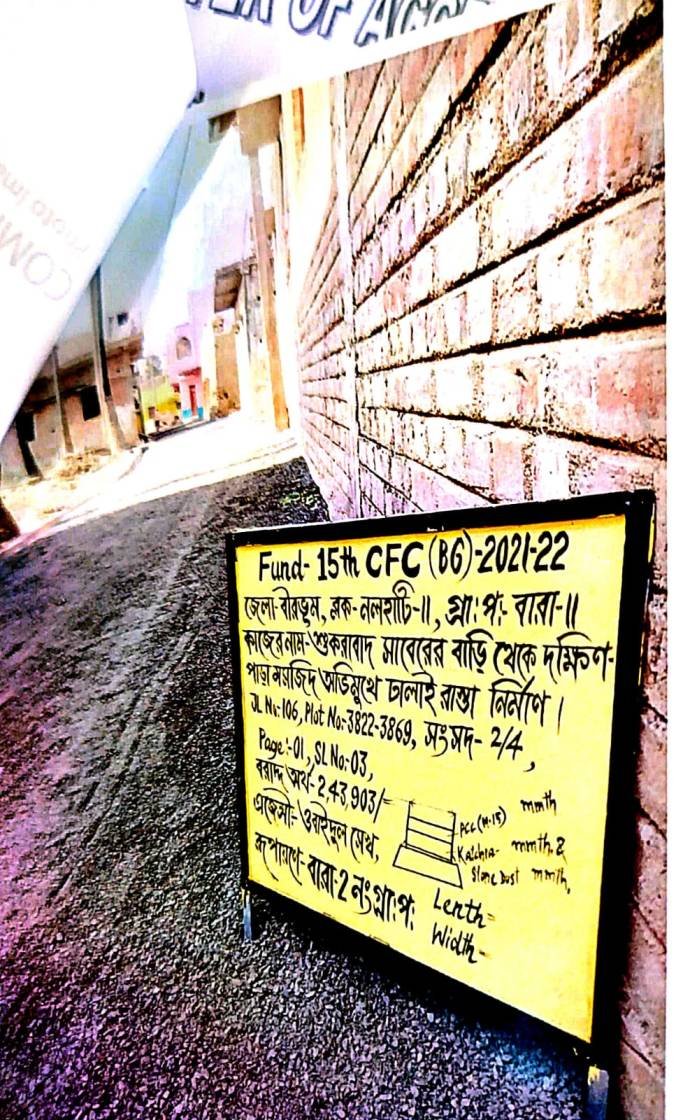 OF
COM
Fund- 15th CFC (BG)-2021-22
জেলা-বীরভূম, ব্লক-নলহাটি-॥, গ্রা:প:- বারা-॥
কাজের নাম-শুকরাবাদ সাবেরের বাড়ি থেকে দক্ষিণ-
পাড়া মসজিদ অভিমুখে ঢালাই রাস্তা নির্মাণ।
JL No:-106, Plot No:-3822-3869, সংসদ- 2/4,
Page:-01, SL No:-03,
বরাদ্দ অর্থ-2,43,903/-
এজেন্সী:- ওবাইদুল সেখ,
রূপায়ণে-বারা-2 নং গ্রা:প:
PCC (M-15) mmth
mmth. 2
Stone Dust mmth,
Lenth-
Width-